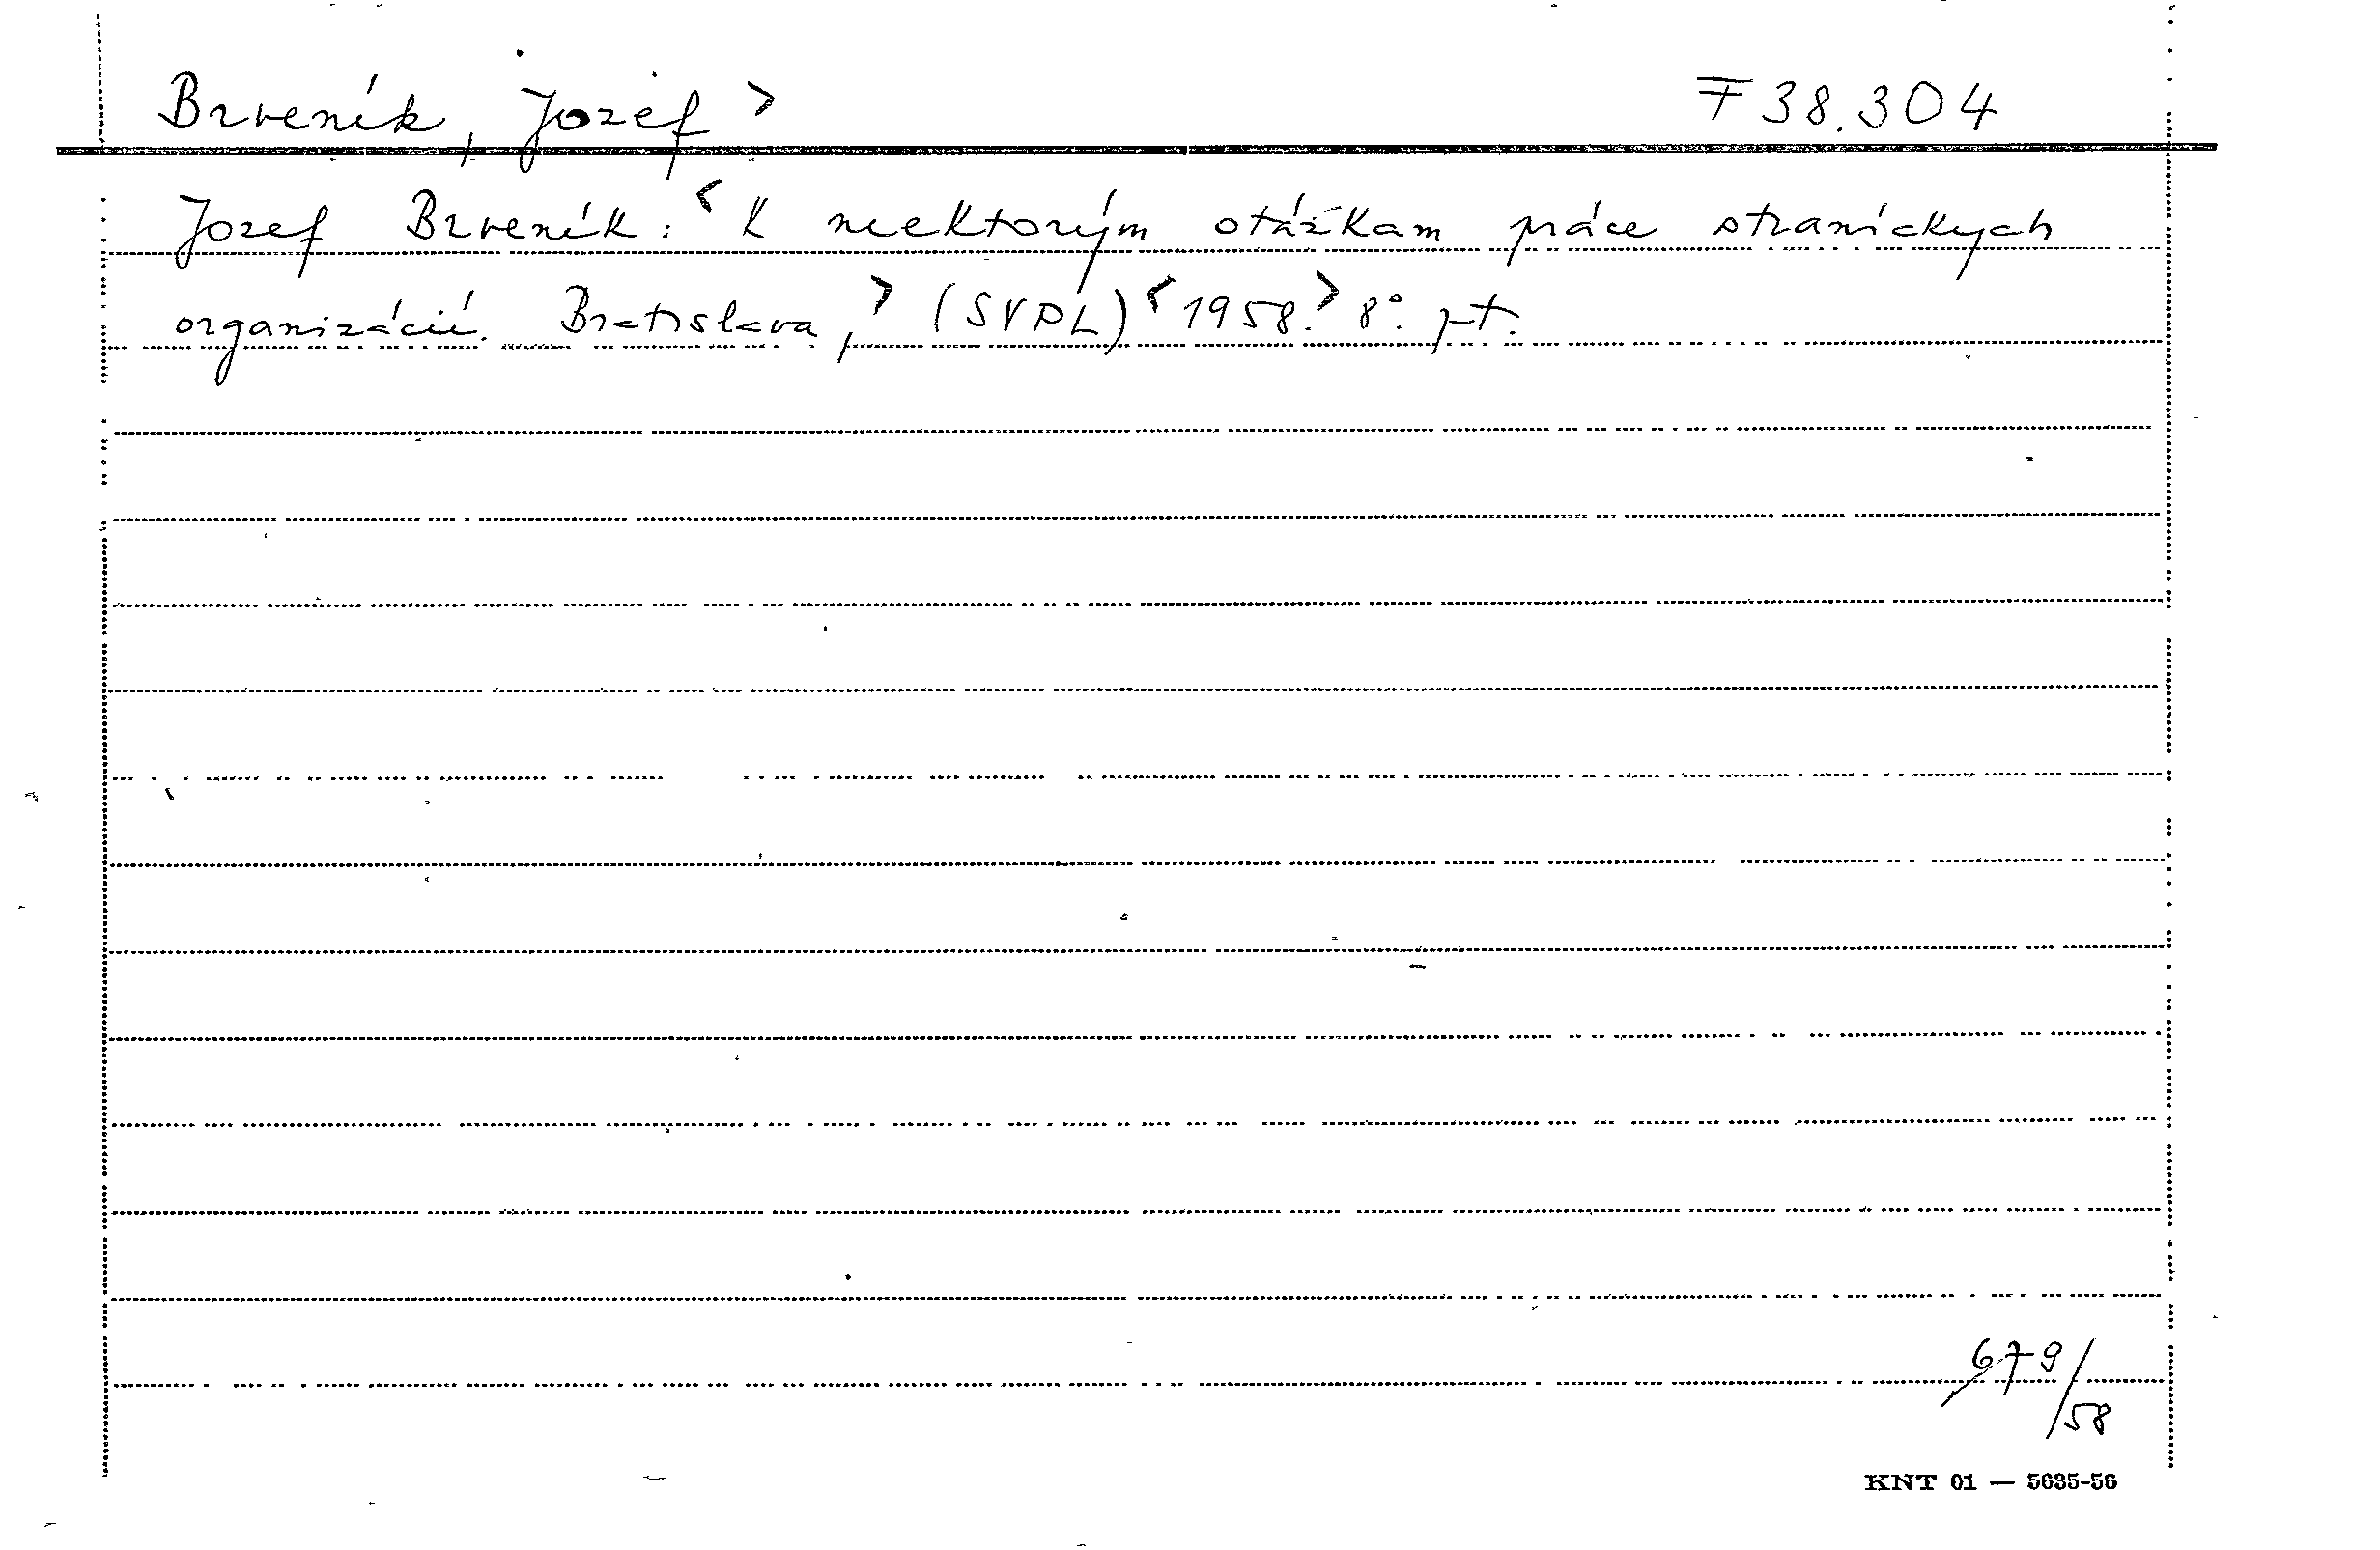 Brveník, Jozef > F 38.304
Jozef Brveník: < K niektorým otázkam práce straníckych
organizácií. Bratislava, > (SVPL) < 1958. > 8°. pt.
679/58
KNT 01 — 5635-56